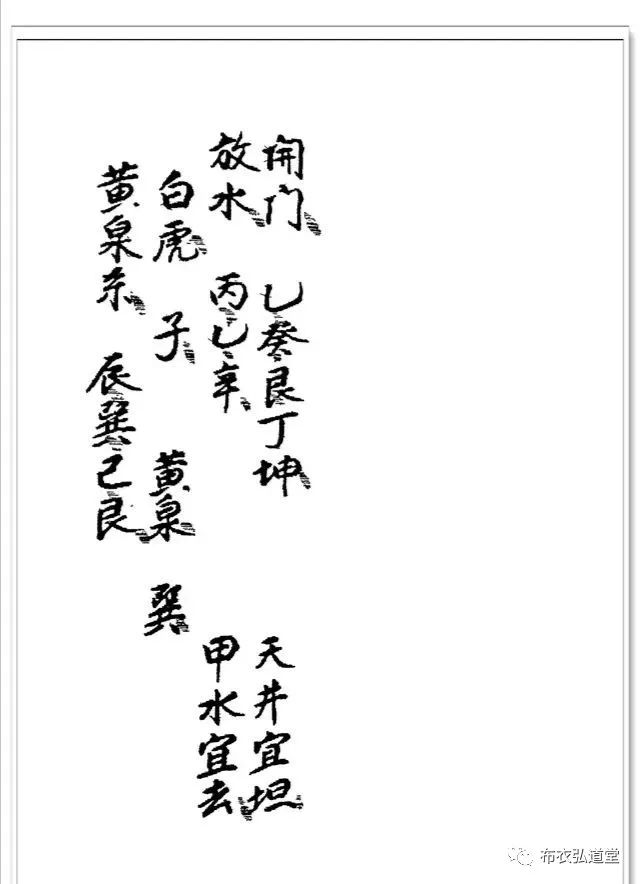 開门 乙癸艮丁坤 天井宜坦
放水 丙乙辛 甲水宜去
白虎 子 黄泉 巽
黄泉杀 辰巽巳艮
布衣弘道堂